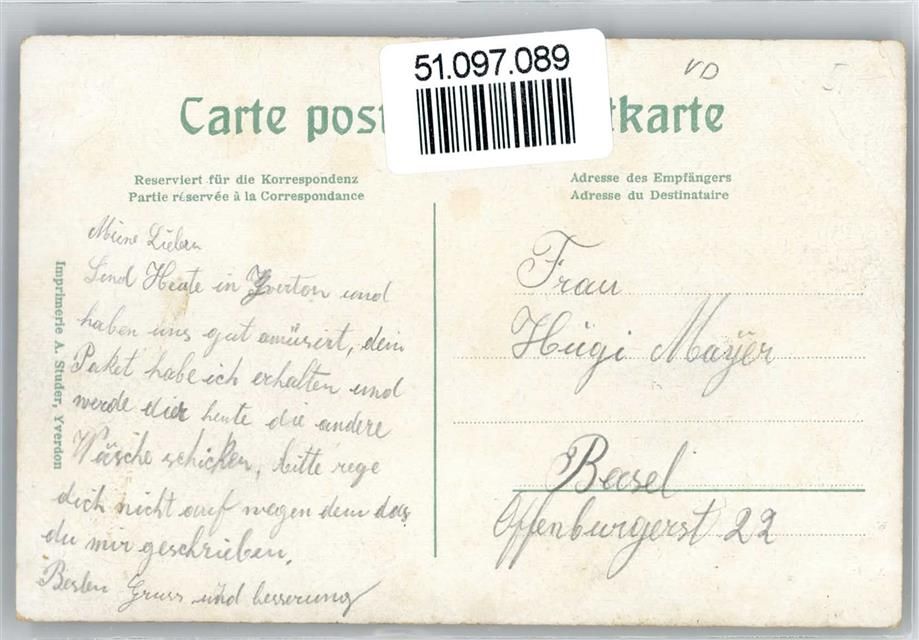 51.097.089
VD
Carte post
tkarte
Reserviert für die Korrespondenz
Partie réservée à la Correspondance
Adresse des Empfängers
Adresse du Destinataire
Imprimerie A. Studer, Yverdon
Meine Lieben
Sind Heute in Yverton und
haben uns gut amüsirt, dein
Paket habe ich erhalten und
werde dier heute die andere
Wäsche schicken, bitte rege
dich nicht auf wegen dem das
du mir geschrieben.
Besten Gruss und besserung
Frau
Hügi Mayer
Basel
Offenburgerst 22